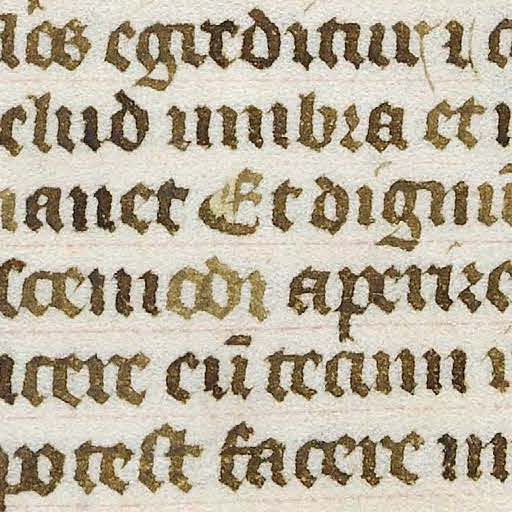 los egreditur ⁊ c
elud umbra et n
manet Et dignū
scemodi aperire
ucere eū tecum i
potest facere m